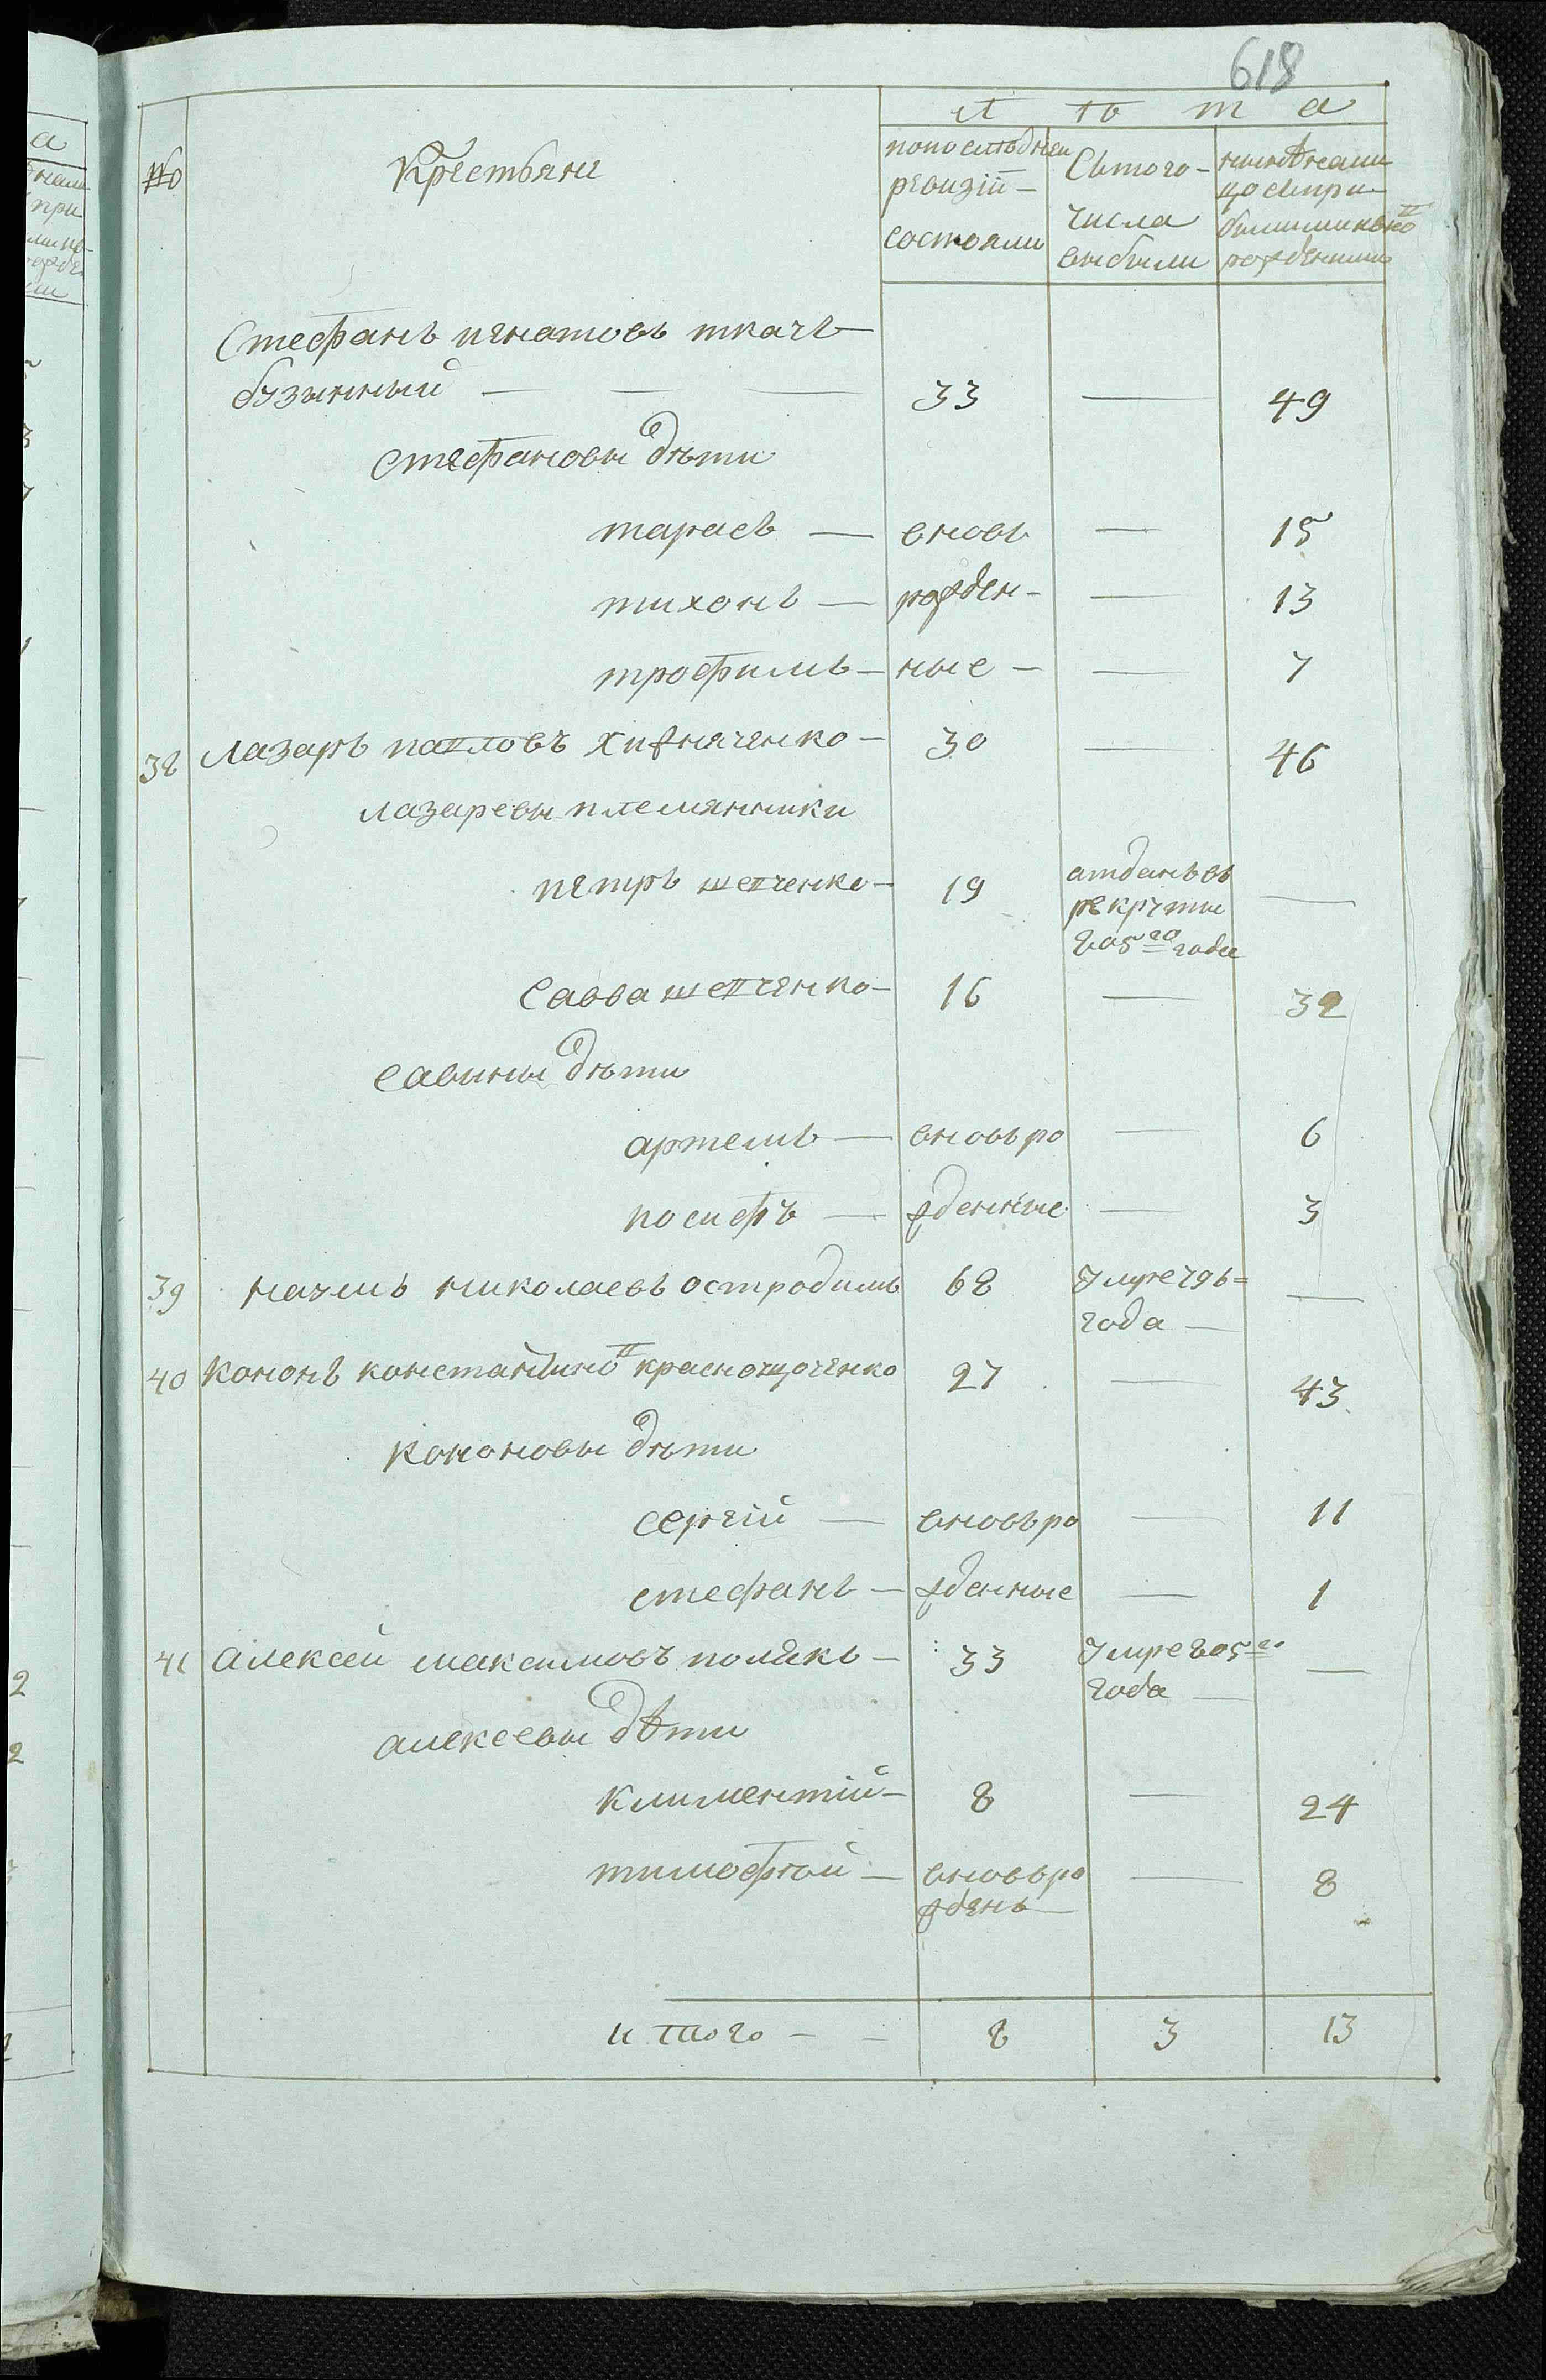 618
№
Крестьяне
Л ѣ т а
попоследней
ревизіи
состояли
Сътого-
числа
выбыли
нынѣнали
цосъпри
былимиивно
рожденими
Стефанъ игнатовъ ткачъ
бузынный — — — 33 — 49
стефановы дѣти
тарасъ — вновь — 15
тихонъ — рожден- — 13
трофимъ — ные — — 7
38 Лазарь павловъ хижняченко — 30 — 46
лазаревы племянники
петръ шевченко — 19 атданъвъ —
рекруты
805го годе
Савва шевченко — 16 — 32
савины дѣти
артемъ — вновьро — 6
иосифъ — жденные — 3
39 наумъ николаевъ остродимъ 68 Умре796= —
года —
40 Кононъ константинов краснощоченко 27 — 43
Кононовы дѣти
сергій — вновьро — 11
стефанъ — жденные — 1
41 Алексей максимовъ полякъ — 33 Умре805го —
года —
алексеевы дѣти
климентій — 8 — 24
тимофѣй — вновьро — 8
жденъ —
итого — — 8 3 13